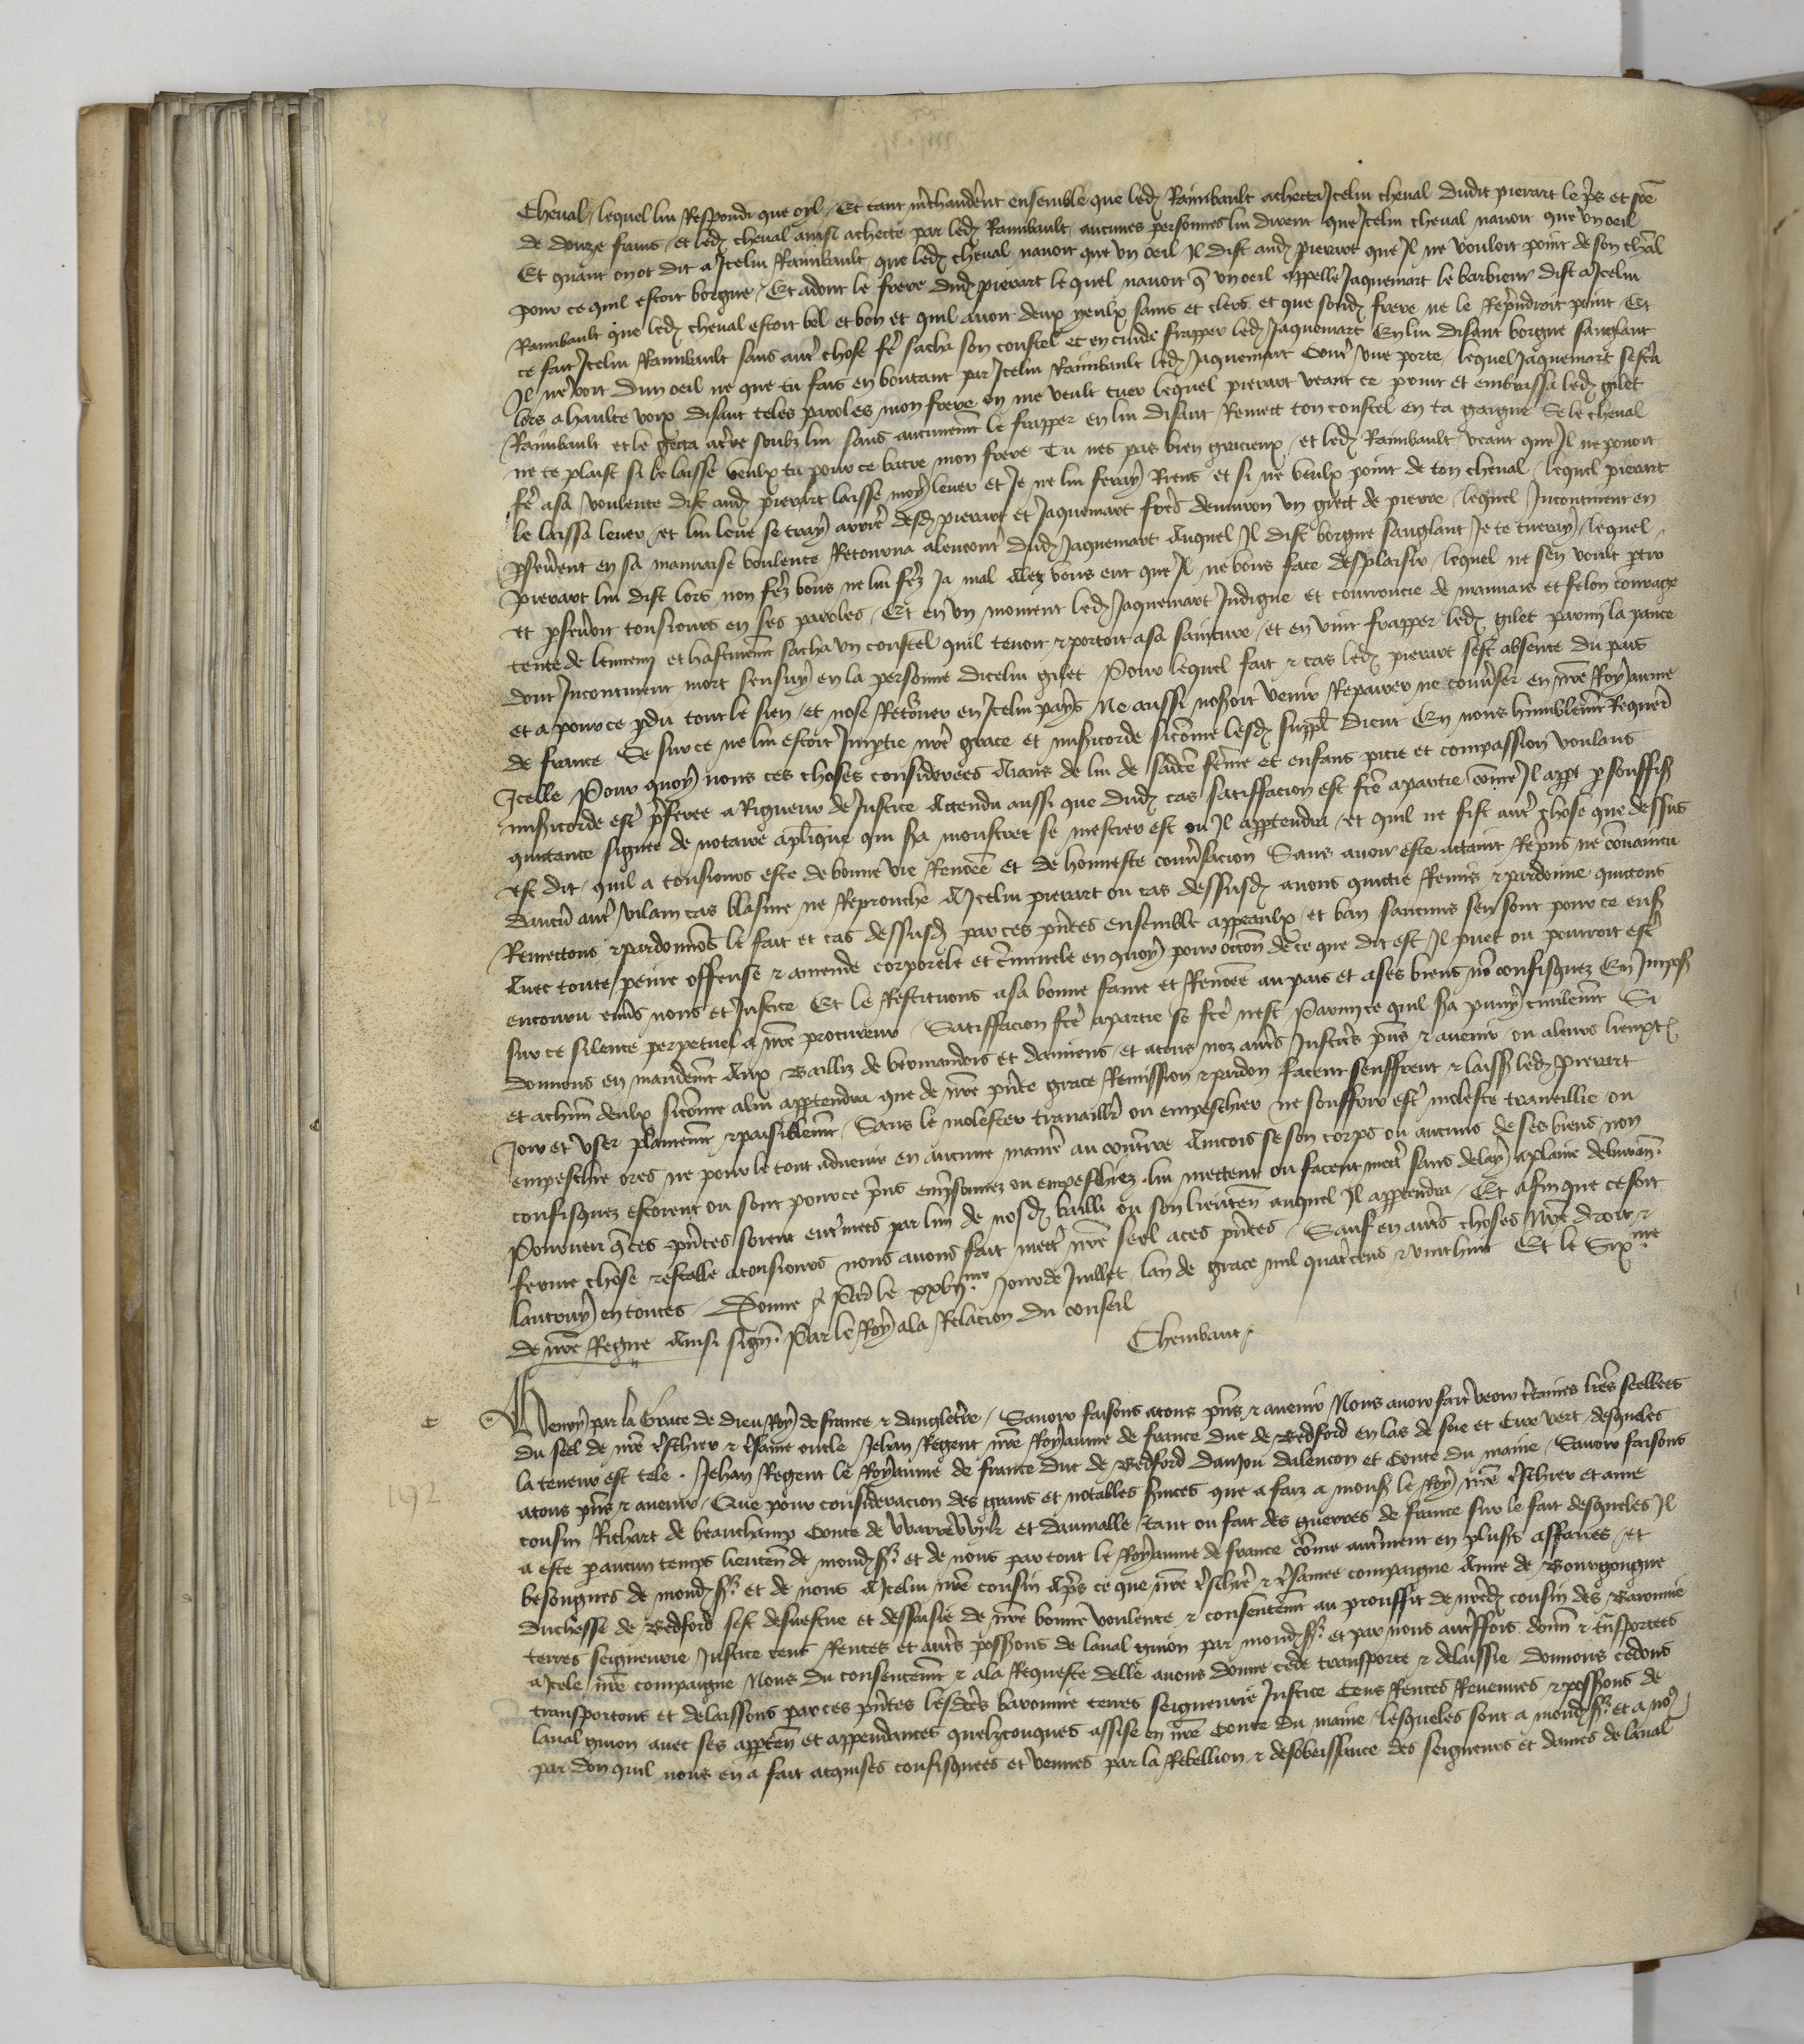 Cheval / lequel lui Respondi que oyl / Et tant m̃chanderẽt ensemble que led Rainbault achecta Icelui cheval dudit pierart le pris et sõe
de douze frans / et led cheval ainsi achecte par led Rainbault / aucunes personnes lui dirent que Icelui cheval navoit que un oeil
Et quant on ot dit a Icelui Rainbault / que led cheval navoit que un oeil Il dist aud pierart que Il ne vouloit point de son chãl
pour ce quil estoit borgne / Et adont le frere dud pierart le quel navoit q̃ un oeil appelle Jaquemart le barbieur dist a Icelui
Rainbault que led cheval estoit bel et bon et quil avoit deux yeulx sains et clers et que sond frere ne le Reprendroit point / Et
ce fait Icelui Rainbault sans autr̃ chose fẽ sacha son coustel et en cuida frapper led Jaquemart En lui disant borgne sanglant
Il ne voit dun oeil ne que tu fais en boutant par Icelui Rainbault led Jaquemart contr̃ une porte / lequel Jaquemart sescria
lors a haulte voix disant teles paroles mon frere on me veult tuer lequel pierart veant ce point et embrassa led gilet
Rainbault et le gecta a terre soubz lui sans aucunemẽt le frapper en lui disant / Remect ton coustel en ta gaigne Se le cheval
ne te plaist si le laisse veulx tu pour ce batre mon frere Tu nes pas bien gracieux / et led Rainbault veant que Il ne povoit
fẽ a sa voulente dist aud pierart laisse moy lever et Je ne lui feray Riens et si ne veulx point de ton cheval / lequel pierart
le laissa lever / et lui leve se tray arrier desd pierart et Jaquemart freres denviron un giect de pierre / lequel Incontinent en
perseverent en sa mauvaise voulente Retourna alencontr̃ dud Jaquemart Auquel Il dist borgne sanglant Je te tueray / lequel
pierart lui dist lors non ferez vous ne lui ferez Ja mal Alez vous ent que Il ne vous face desplaisir / lequel ne sen voult ptir
et pseveroit tousiours en ses paroles / Et en un moment led Jaquemart Indigne et courroucie de mauvais et felon courage
tente de lennemi et hastivemẽt sacha un coustel quil tenoit & portoit a sa sainture / et en vint frapper led gilet parmi la pance
dont Incontinent mort sensuy en la personne dicelui gilet Pour lequel fait & cas led pierart sest absente du pais
et a pour ce pdu tout le sien / et nose Retourner en Icelui pays Ne aussi noseroit venir Repairer ne convser en nrẽ Royaume
de france Se sur ce ne lui estoit Imptie nrẽ grace et misicorde sicõme lesd suppl dient En nous humblemẽt Requer̃
Icelle Pour quoy nous ces choses considerees Aians de lui de sadcẽ fẽme et enfans pitie et compassion voulans
misicorde estr̃ p̃feree a Rigueur de Justice Attendu aussi que dud cas satisfacion est fcẽ a partie cõme Il appt p souffis
quictance signee de notaire aplique qui sẽa monstree se mestier est ou Il apptendra / et quil ne fist autr̃ chose que dessus
est dit / quil a tousiours este de bonne vie Renõee et de honneste convsacion Sans avoir este attaint Repris ne convaincu
daucũ autr̃ vilain cas blasme ne Reprouche A Icelui pierart ou cas dessusd avons quictie Remis & pardonne quictons
Remettons & pardonnõs le fait et cas dessusd par ces pñtes ensemble appeaulx / et ban saucuns sen sont pour ce ensuiz
Avec toute peine offense & amende corporele et c̃minele en quoy pour occõn de ce que dit est / Il puet ou pourroit estr̃
encouru envs nous et Justice Et le Restituons a sa bonne fame et Renõee au pais et a ses biens nõ confisquez En Impos
sur ce silence perpetuel a nrẽ procureur / Satisfacion fcẽ a partie se fcẽ nest Parmi ce quil sẽa puny civilemẽt Si
donnons en mandemẽt Aux Bailliz de vermandois et damiens / et a tous noz autr̃s Justicrs p̃ns & avenir ou a leurs lieuxt
et a chũn deulx sicõme a lui apptendra que de nrẽ pñte grace Remission & pardon facent seuffrent & laiss led Pierart
Joir et user plainemẽt & paisiblemẽt / Sans le molester travaillr̃ ou empeschier ne souffrir estr̃ moleste traveillie ou
empeschie ores ne pour le tout advenir en aucune manier̃ au contrere Aincois se son corps ou aucuns de ses biens non
confisquez estoient ou sont pour ce p̃ns emprisonnez ou empeschiez lui mettent ou facent mectr̃ sans delay a plaine delivran̄
Pourveu q̃ ces pñtes soient entr̃inees par lun de nosd baillis ou son lieuten̄ auquel Il apptendra / Et afin que ce soit
ferme chose & estable a tousiours nous avons fait mectr̃ nrẽ seel a ces pñtes / Sauf en autr̃s choses nrẽ droit &
lautruy en toutes / Donne a Paris le xxvije Jour de Juillet lan de grace mil quatrcens & vint huit Et le Sixme
de nrẽ Regne Ainsi sign̄ Par le Roy a la Relacion du conseil
Chembaut /
192
Henry par la Grace de Dieu Roy de france & dangletr̃e / Savoir faisons a tous p̃ns & avenir Nous avoir fait veoir c̃taines lrẽs seellees
du seel de nrẽ trẽschier & trẽsame oncle Jehan Regent nrẽ Royaume de france duc de Bedford en las de soie et Cire vert / desqueles
la teneur est tele . Jehan Regent le Royaume de france duc de Bedford danjou dalencon et Conte du maine / Savoir faisons
a tous p̃ns & avenir / Que pour consideracion des grans et notables s̃vices que a faiz a mons le Roy nrẽ trẽschier et ame
cousin Richart de beauchamp Conte de Warrewyk et daumalle / tant ou fait des guerres de france sur le fait desqueles Il
a este p aucun temps lieuten̄ de mond sr̃ et de nous par tout le Royaume de france cõme autr̃ment en plusrs affaires / et
besongnes de mond sr̃ et de nous A Icelui nrẽ cousin Apr̃s ce que nrẽ trẽschr̃e & trẽsamee compaigne Anne de Bourgongne
Duchesse de Bedford sest desvestue et dessaisie de nrẽ bonne voulente & consentemẽt au prouffit de nrẽd cousin des Baronnie
terres seigneurie Justice cens Rentes et autr̃s possions de laval guion par mond sr̃ et par nous autr̃ffois donn̄ & trãsportees
a Icele nrẽ compaigne Nous du consentemẽt & a la Requeste delle avons donne cede transporte & delaissie Donnons cedons
transportons et delaissons par ces pñtes lesdcẽs baronnie terres seigneurie Justice Cens Rentes Revenues & possions de
laval guion avec ses apptẽn et appendances quelzconques assise en nrẽ Conte du maine / lesqueles sont a mond sr̃ et a nõ
par don quil nous en a fait acquises confisquees et venues par la Rebellion & desobeissance des seigneurs et dames de laval